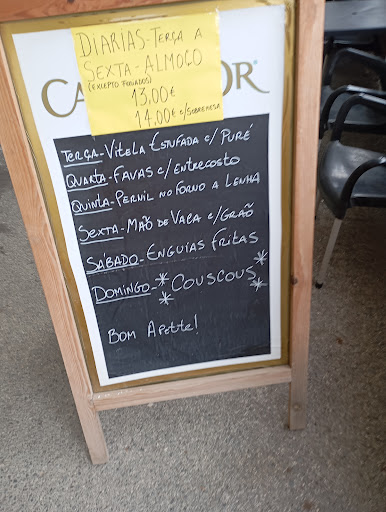 DIÁRIAS-TERÇA A
SEXTA-ALMOÇO
(EXCEPTO FERIADOS)
13,00€
14,00€ c/SOBREMESA
CA OR®
TERÇA-VITELA ESTUFADA c/ PURÉ
QUARTA-FAVAS c/ ENTRECOSTO
QUINTA-PERNIL NO FORNO A LENHA
SEXTA-MÃO DE VACA c/GRÃO
SÁBADO-ENGUIAS FRITAS
DOMINGO-*COUSCOUS*
BOM APETITE!